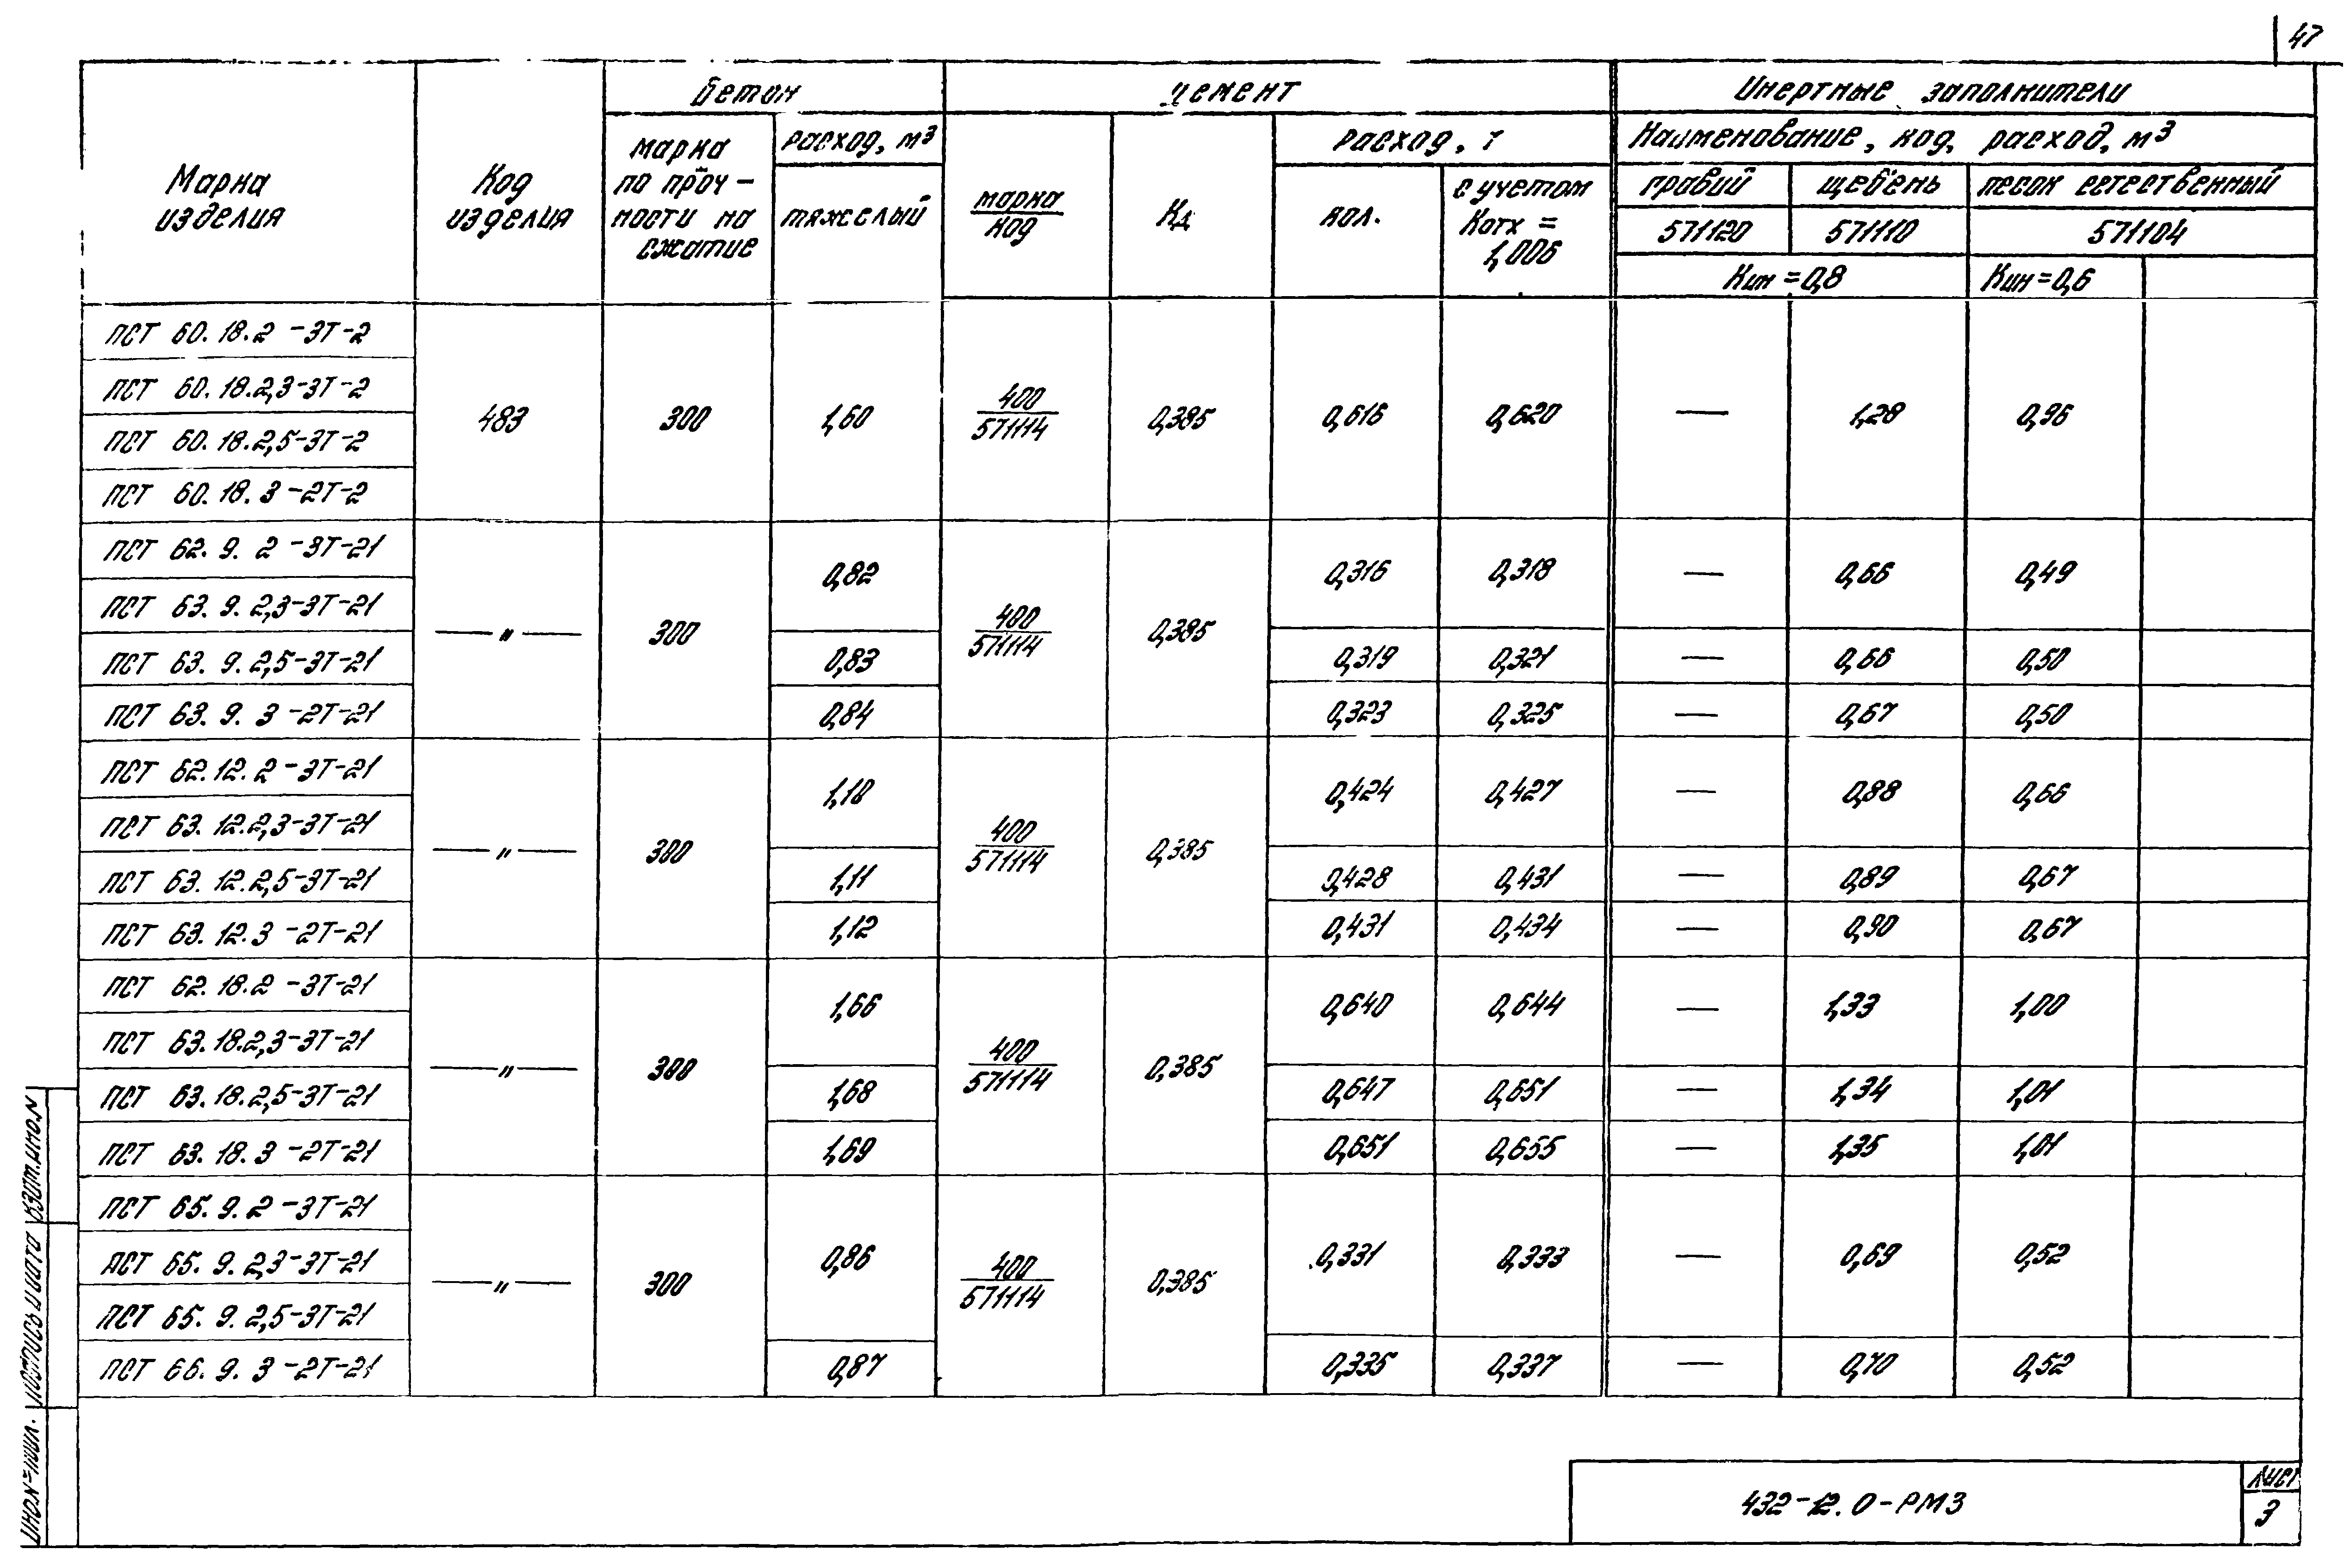 47
Бетон Цемент Инертные заполнители
Марка изделия
Код изделия
марка по проч-ности на сжатие
расход, м³
тяжелый
марка / код
Кд
расход, т
кол.
с учетом Котх = 1,006
Наименование, код, расход, м³
гравий щебень песок естественный
571120 571110 571104
Кин = 0,8 Кин = 0,6
ПСТ 60.18.2 -3Т-2
ПСТ 60.18.2,3-3Т-2
483 300 1,60 400/571114 0,385 0,616 0,620 — 1,28 0,96
ПСТ 60.18.2,5-3Т-2
ПСТ 60.18.3 -2Т-2
ПСТ 62. 9. 2 -3Т-21
0,82 0,316 0,318 — 0,66 0,49
ПСТ 63. 9. 2,3-3Т-21
—"— 300 400/571114 0,385
ПСТ 63. 9. 2,5-3Т-21 0,83 0,319 0,321 — 0,66 0,50
ПСТ 63. 9. 3 -2Т-21 0,84 0,323 0,325 — 0,67 0,50
ПСТ 62.12. 2 -3Т-21
1,10 0,424 0,427 — 0,88 0,66
ПСТ 63.12.2,3-3Т-21
—"— 300 400/571114 0,385
ПСТ 63.12.2,5-3Т-21 1,11 0,428 0,431 — 0,89 0,67
ПСТ 63.12.3 -2Т-21 1,12 0,431 0,434 — 0,90 0,67
ПСТ 62.18.2 -3Т-21
1,66 0,640 0,644 — 1,33 1,00
ПСТ 63.18.2,3-3Т-21
—"— 300 400/571114 0,385
ПСТ 63.18.2,5-3Т-21 1,68 0,647 0,651 — 1,34 1,01
ПСТ 63.18.3 -2Т-21 1,69 0,651 0,655 — 1,35 1,01
ПСТ 65. 9. 2 -3Т-21
ПСТ 65. 9. 2,3-3Т-21 0,86 0,331 0,333 — 0,69 0,52
—"— 300 400/571114 0,385
ПСТ 65. 9. 2,5-3Т-21
ПСТ 66. 9. 3 -2Т-21 0,87 0,335 0,337 — 0,70 0,52
432-12.0-РМ3
Лист
3
Инв.№ подл. Подпись и дата Взам.инв.№